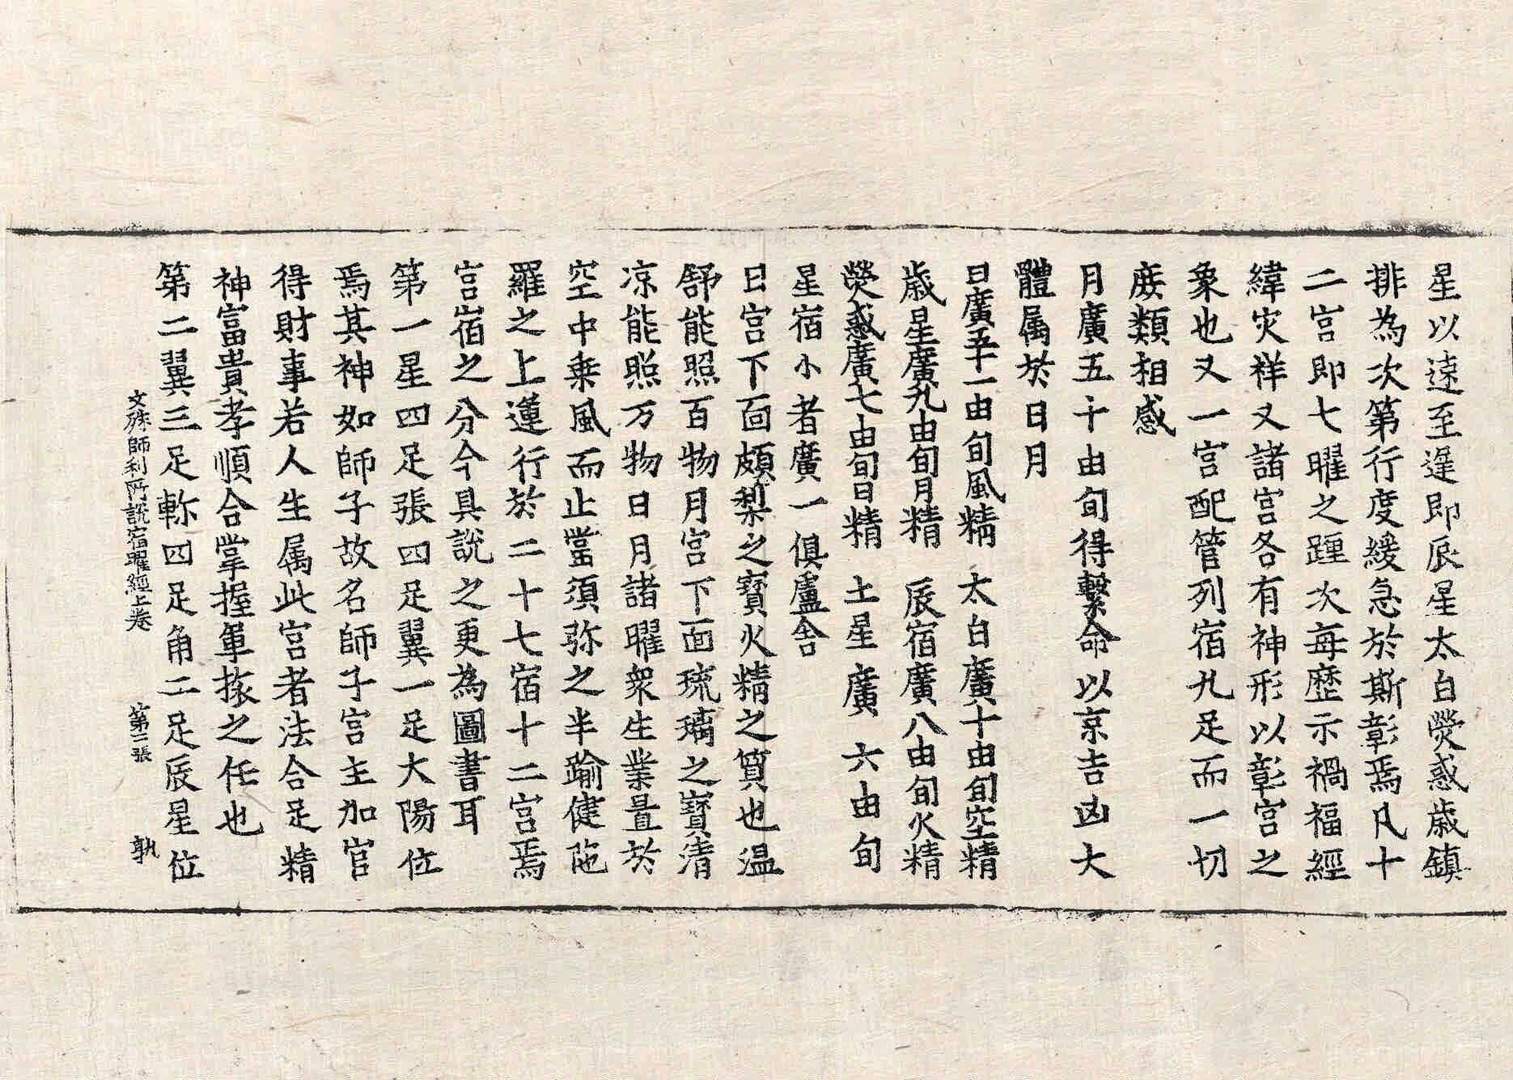 星以速至遲即辰星太白熒惑歲鎮
排為次第行度緩急於斯彰焉凡十
二宮即七曜之躔次每歷示禍福經
緯灾祥又諸宮各有神形以彰宮之
象也又一宮配管列宿九足而一切
庶類相感
月廣五十由旬得繫命以京吉凶大
體属於日月
日廣五十一由旬風精 太白廣十由旬空精
歲星廣九由旬月精 辰宿廣八由旬火精
熒惑廣七由旬日精 土星廣 六由旬
星宿小者廣一俱盧舍
日宮下面頗梨之寶火精之質也温
舒能照百物月宮下面琉璃之寶清
凉能照万物日月諸曜眾生業置於
空中乗風而止當須弥之半踰健陁
羅之上運行於二十七宿十二宮焉
宮宿之分今具說之更為圖書耳
第一星四足張四足翼一足大陽位
焉其神如師子故名師子宮主加官
得財事若人生属此宮者法合足精
神富貴孝順合掌握軍旅之任也
第二翼三足軫四足角二足辰星位
文殊師利所說宿曜經上卷 第二張 孰